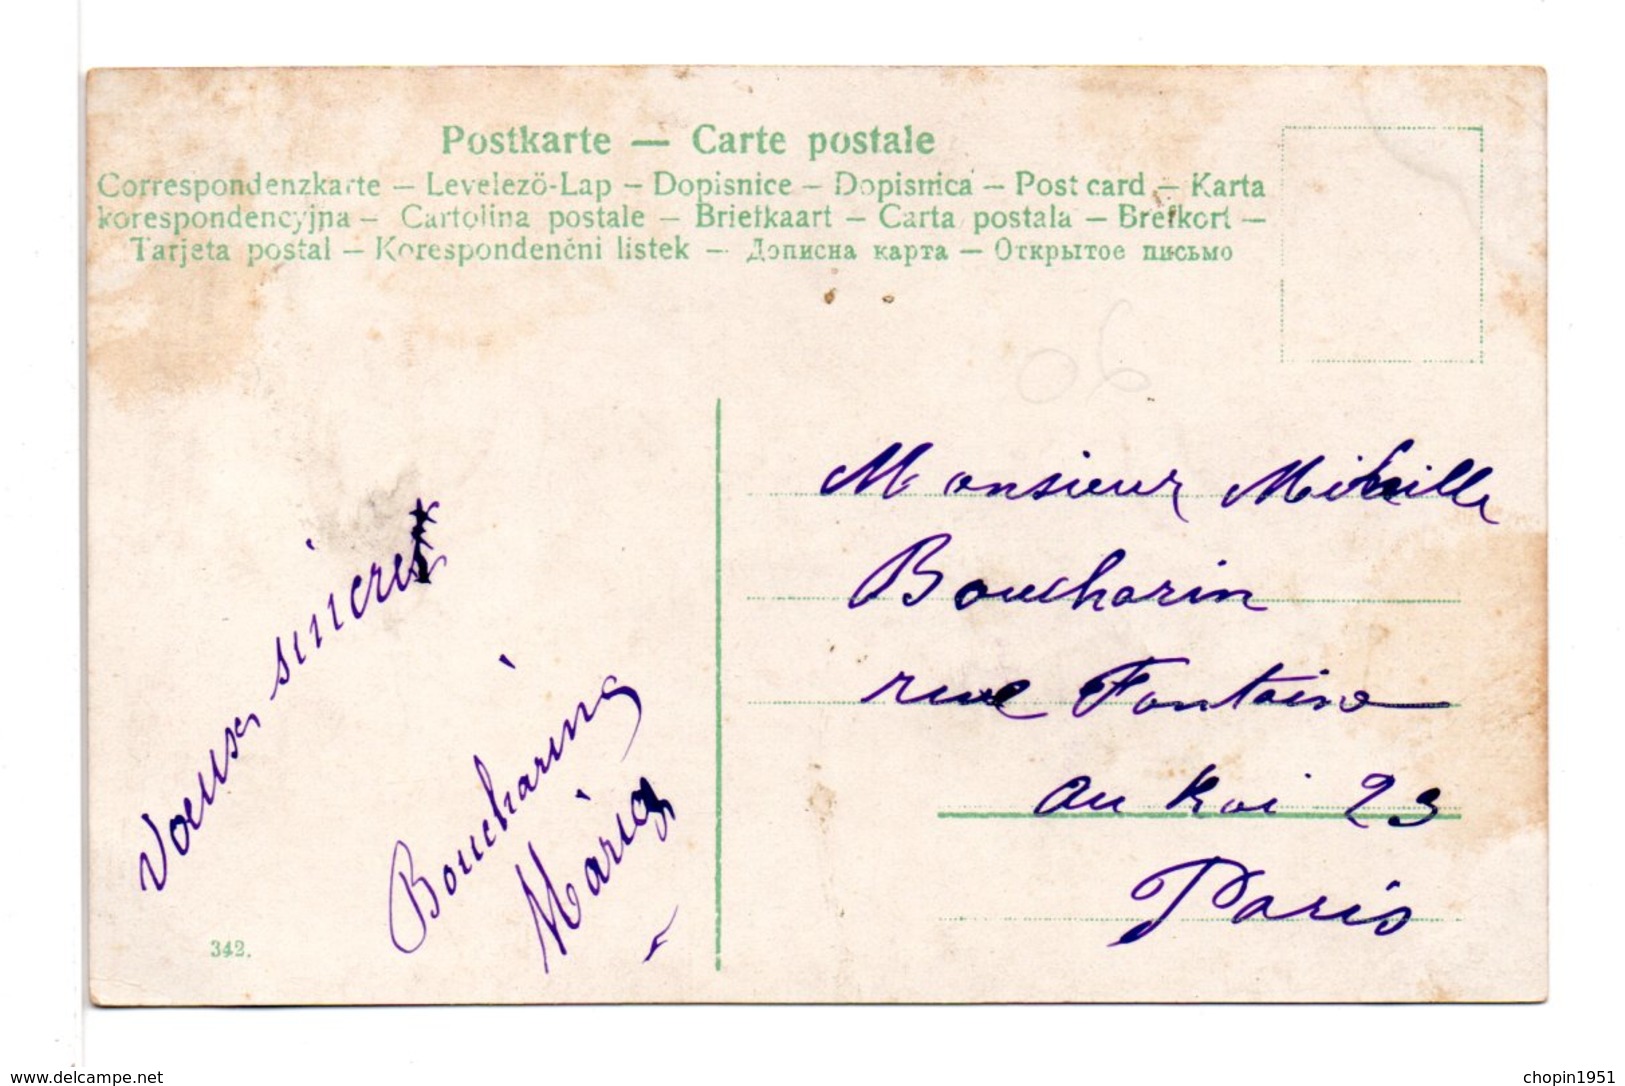 Postkarte — Carte postale
Correspondenzkarte — Levelező-Lap — Dopisnice — Dopisnica — Post card — Karta
korespondencyjna — Cartolina postale — Briefkaart — Carta postala — Brefkort —
Tarjeta postal — Korespondenčni listek — Дописна карта — Открытое письмо
90
Voeux sincères
Boucharing
Maria
Monsieur
Boucharin
rue Fontaine
au Roi 23
Paris
342.
www.delcampe.net
chopin1951